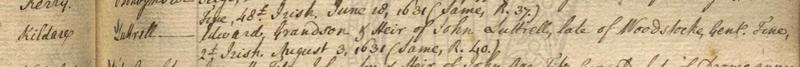 Kerry.
Fine, 48£ Irish. June 18, 1631 (Same, R. 37.)
Kildare Luttrell — Edward, Grandson & Heir of John Luttrell, late of Woodstocke, Gent. Fine,
2£ Irish. August 3, 1631 (Same, R. 40.)